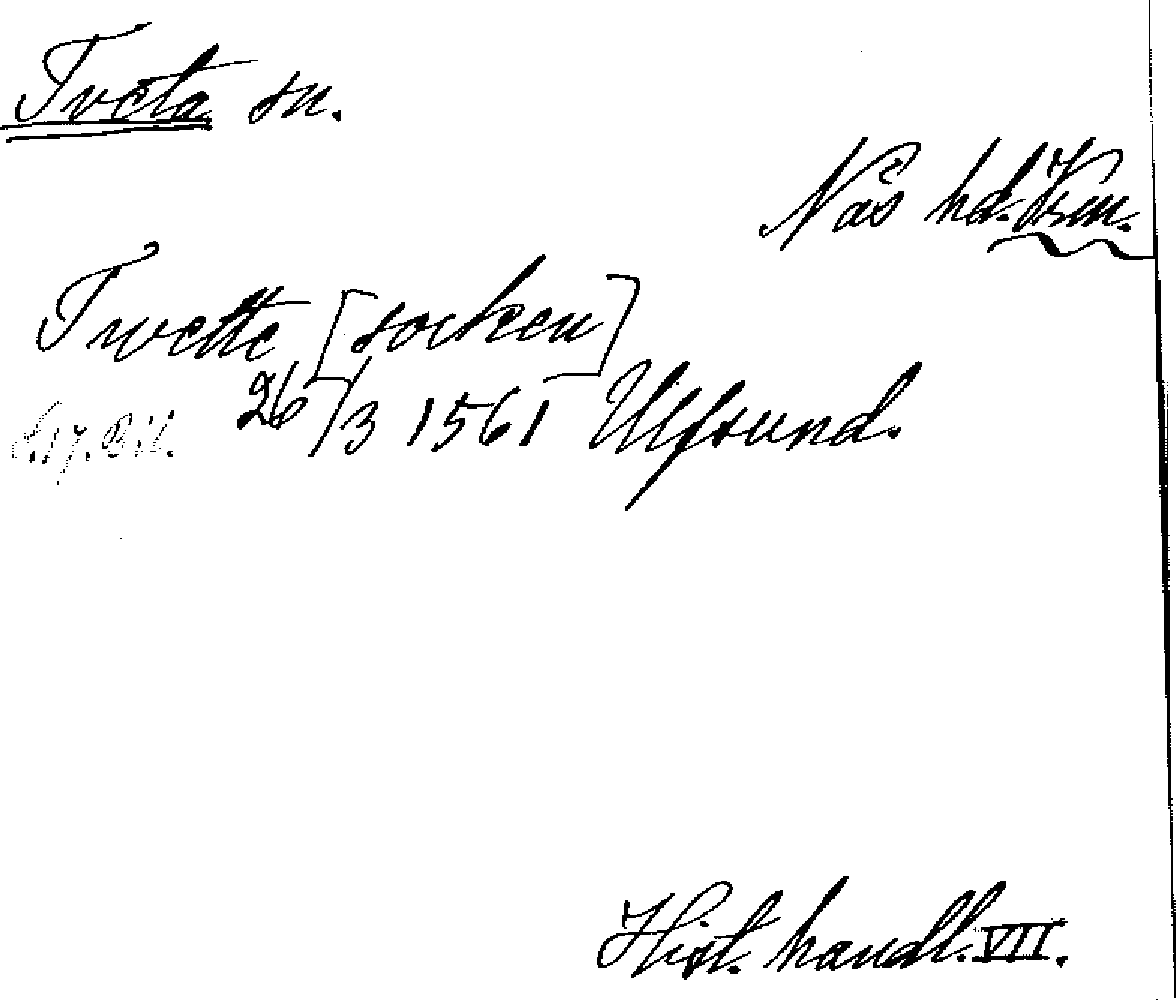 Tveta sn.
Näs hd. Vrm.
Twette [socken]
26/3 1561 Ulfsund.
Hist. handl. VII.